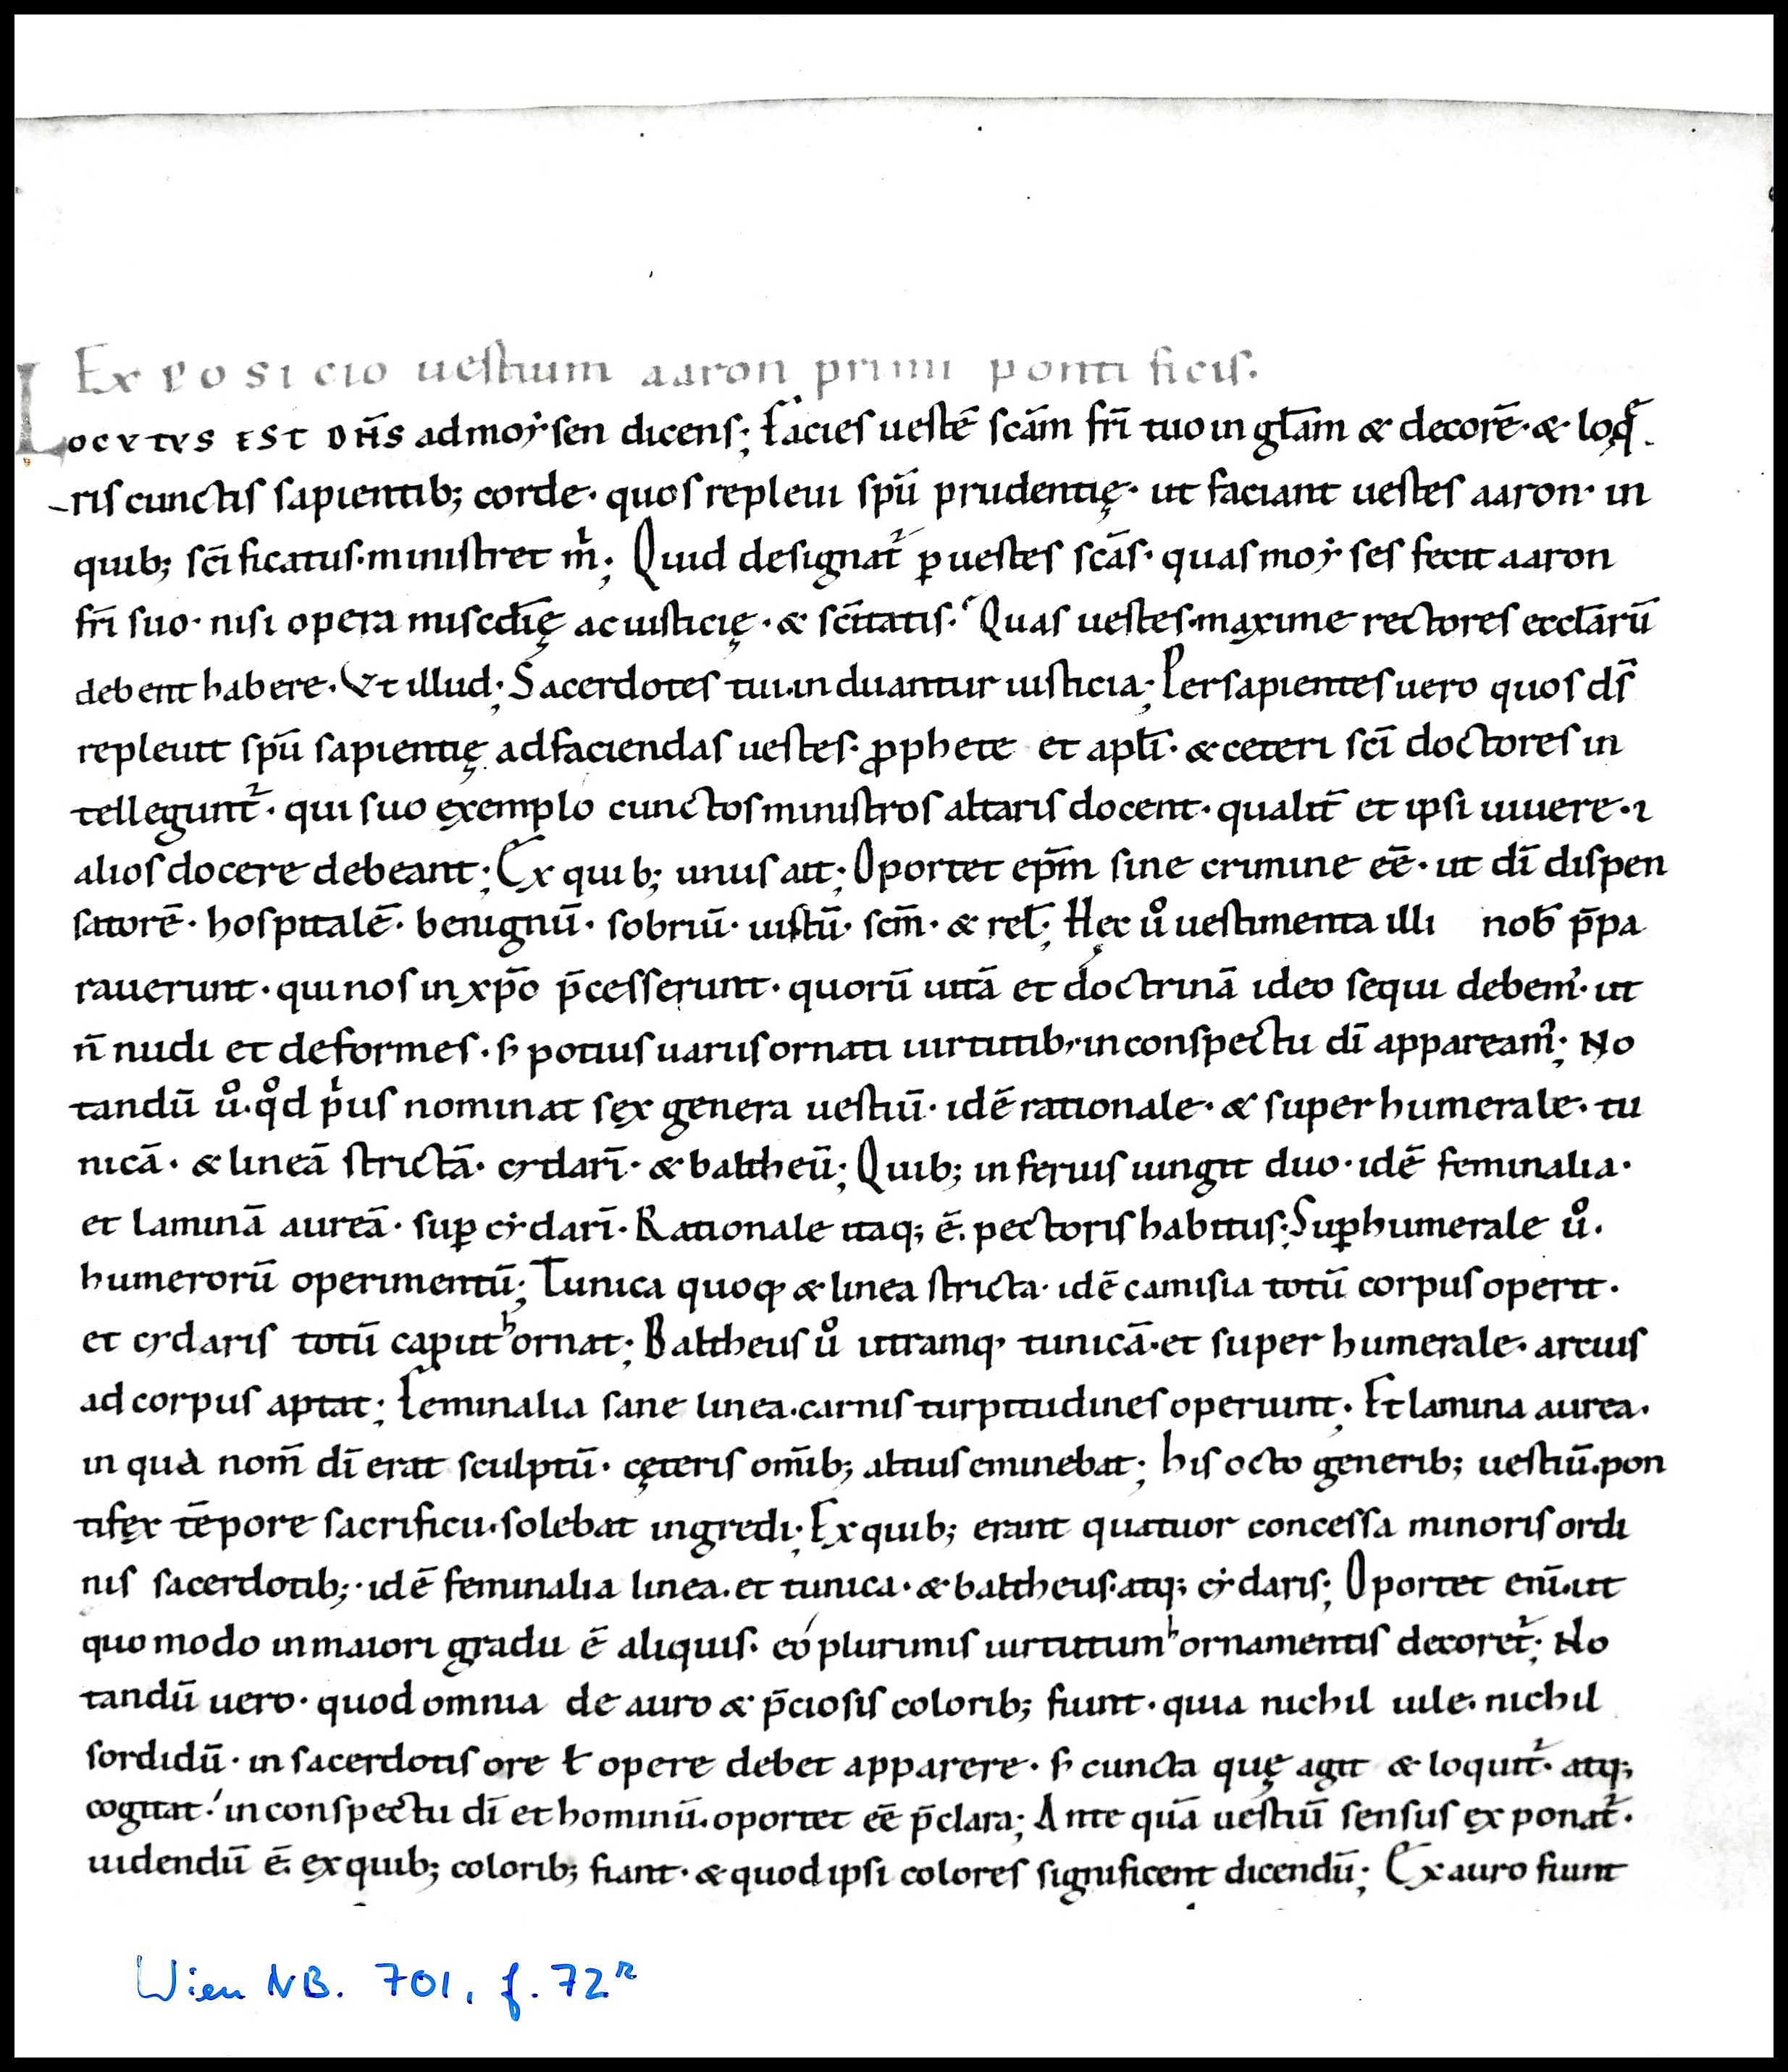 Exposicio uestium aaron primi pontificis.
Locutus est dn̄s ad moẏsen dicens; Facies uestē scām fr̄i tuo in gl̄am & decorē· & loq̄
ris cunctis sapientib; corde· quos repleui sp̄u prudentię· ut faciant uestes aaron· in
quib; sc̄ificatus· ministret m̄; Quid designat᷑ ꝑ uestes scās· quas moẏses fecit aaron
fr̄i suo· nisi opera miscd̄ię ac iusticię· & sc̄itatis· Quas uestes· maxime rectores eccl̄arū
debent habere· Vt illud; Sacerdotes tui· induantur iusticia; Per sapientes uero quos ds̄
repleuit sp̄u sapientię ad faciendas uestes· ꝓphete et apl̄i· & ceteri sc̄i doctores in
tellegunt᷑· qui suo exemplo cunctos ministros altaris docent· qualit̄ et ipsi uiuere· ⁊
alios docere debeant; Ex quib; unus ait; Oportet ep̄m sine crimine eē· ut dī dispen
satorē· hospitalē· benignū· sobriū· iustū· sc̄m· & rel̄; Hęc uͦ uestimenta illi nob̄ p̄pa
rauerunt· qui nos in xp̄o p̄cesserunt· quorū uitā et doctrinā ideo sequi debem᷒· ut
n̄ nudi et deformes· s; potius uariis ornati uirtutib; in conspectu dī appaream᷒; No
tandū uͦ· qͦd pͥus nominat sex genera uestiū· idē rationale· & superhumerale· tu
nicā· & lineā strictā· cẏdarī· & baltheū; Quib; inferius iungit duo· idē feminalia·
et laminā aureā· suꝑ cẏdarī· Rationale itaq; ē· pectoris habitus; Suꝑhumerale uͦ·
humerorū operimentū; Tunica quoq; & linea stricta· idē camisia totū corpus operit·
et cẏdaris totū caput ʰornat; Baltheus uͦ utramq; tunicā· et superhumerale· artius
ad corpus aptat; Feminalia sane linea· carnis turpitudines operiunt· Et lamina aurea·
in qua nom̄ dī erat sculptū· cęteris om̄ib; altius eminebat; his octo generib; uestiū· pon
tifex tēpore sacrificii· solebat ingredi; Ex quib; erant quatuor concessa minoris ordi
nis sacerdotib;· idē feminalia linea· et tunica· & baltheus· atq; cẏdaris; Oportet enī· ut
quomodo in maiori gradu ē aliquis· eó plurimis uirtutum ʰornamentis decoret᷑; No
tandū uero· quod omnia de auro & p̄ciosis colorib; fiunt· quia nichil uile· nichil
sordidū· in sacerdotis ore ł opere debet apparere· s; cuncta quę agit & loquit᷑· atq;
cogitat· in conspectu dī et hominū· oportet eē p̄clara; Ante quā uestiū sensus exponat᷑·
uidendū ē· ex quib; colorib; fiant· & quod ipsi colores significent dicendū; Ex auro fiunt
Wien NB. 701, f. 72ʳ